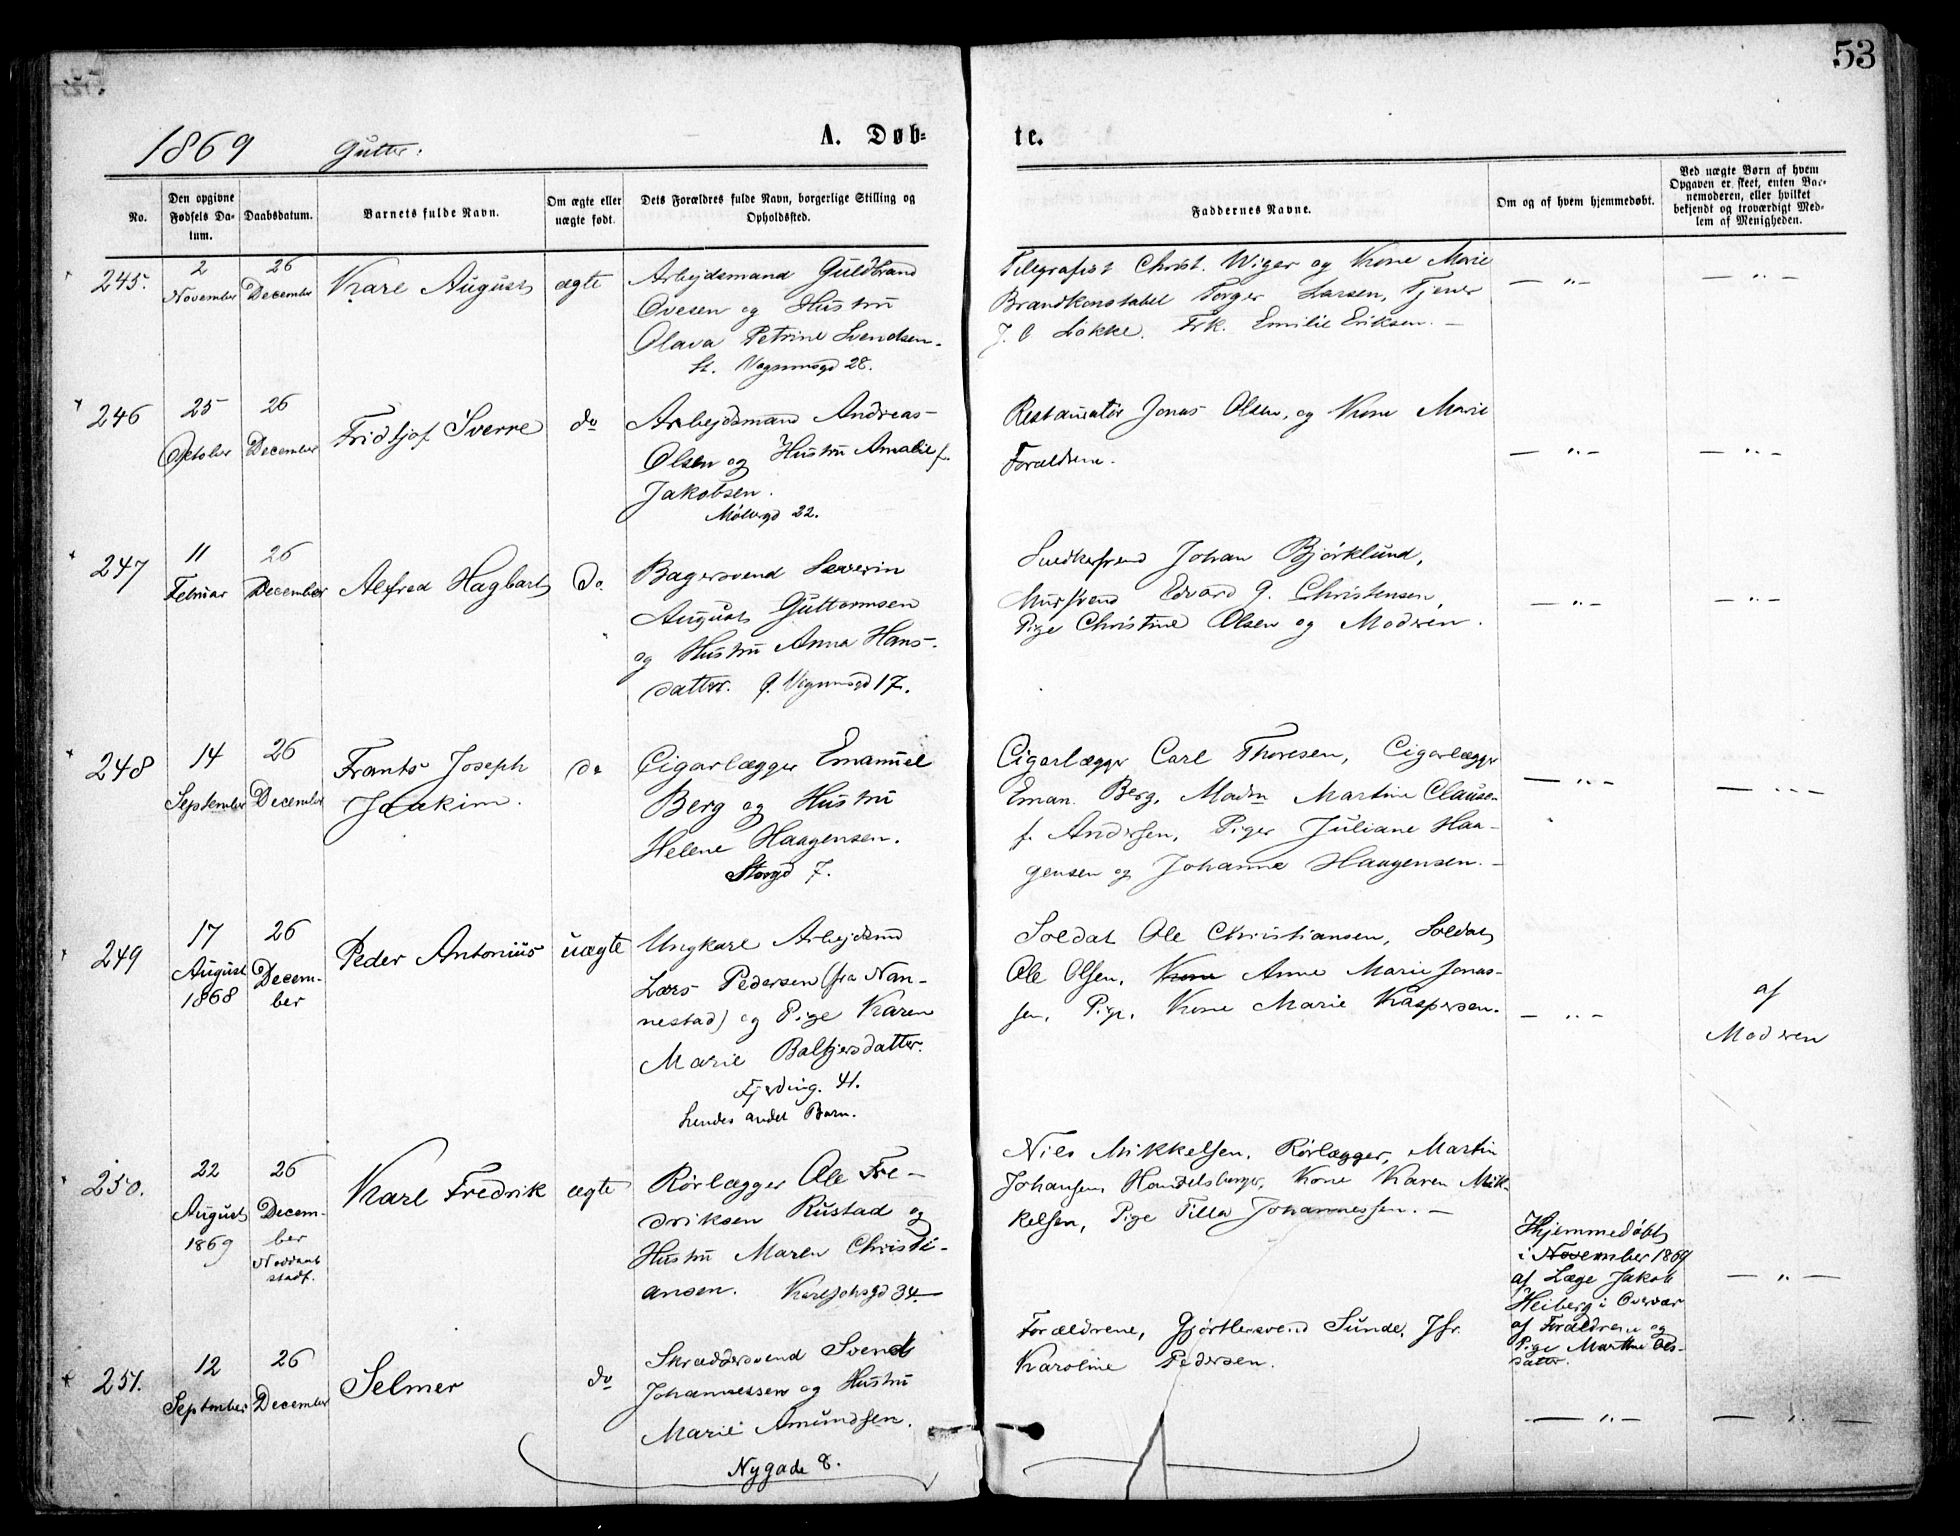 53
1869 Gutter: A. Døb= te.
No.
Den opgivne Fødsels Da= tum.
Daabsdatum.
Barnets fulde Navn.
Om ægte eller uægte født.
Dets Forældres fulde Navn, borgerlige Stilling og Opholdssted.
Faddernes Navne.
Om og af hvem hjemmedøbt.
Ved uægte Børn af hvem
Opgaven er skeet, enten Bar=
nemoderen, eller hvilket
bekjendt og troværdigt Med=
lem af Menigheden.
245.
2
November
26
December
Karl August
ægte
Arbejdsmand Guldbrand
Ovesen og Hustru
Olava Petrine Svendsen.
St. Vognmsgd 28.
Telegrafist Christ. Wiger og Kone Marie
Brandkonstabel Torger Larsen, Tjener
J. C Løkke. Frk. Emilie Eriksen. —
— " —
— " —
246
25
Oktober
26
December
Fridtjof Sverre
do
Arbejdsmand Andreas
Olsen og Hustru Amalie f.
Jakobsen.
Møllergd 22.
Restauratør Jonas Olsen, og Kone Marie
Forældrene.
— " —
— " —
247
11
Februar
26
December
Alfred Hagbart
do
Bagersvend Severin
August Guttormsen
og Hustru Anna Hans-
datter. g. Vognmsgd 17.
Snedkersvend Johan Bjórklund,
Mursvend Edvard G. Christensen,
Pige Christine Olsen og Modren.
— " —
— " —
248
14
September
26
December
Frants Joseph
Joakim.
do
Cigarlægger Emanuel
Berg og Hustru
Helene Haagensen.
Storgd 7.
Cigarlægger Carl Thoresen, Cigarlægger
Eman. Berg, Madm Martine Clause-
f. Andersen, Piger Juliane Haa-
gensen og Johanne Haagensen. —
— " —
— " —
249
17
August
1868
26
Decem-
ber
Peder Antonius
uægte
Ungkarl Arbejdsmd
Lars Pedersen (fra Nan-
nestad) og Pige Karen
Marie Balkjersdatter.
Fjerding. 41.
hendes andet Barn.
Soldat Ole Christiansen, Soldat
Ole Olsen, Kone Anne Marie Jonas-
sen, Pige, Kone Marie Kaspersen.
— " —
af
Modren
250.
22
August
1869
26
Decem-
ber
Nøddaab
stadf.
Karl Fredrik
ægte
Rørlægger Ole Fre-
driksen Rustad og
Hustru Maren Christi-
ansen. Karljohsgd 34.
Nils Mikkelsen, Rørlægger, Martin
Johansen Handelsborger, Kone Karen Mik-
kelsen, Pige Tilla Johannessen. —
Hjemmedøbt
i November 1869
af Læge Jakob
Heiberg i Overvær
af Forældrene og
Pige Marthe Ols-
datter.
— " —
251.
12
September
26
December
Selmer
do
Skræddersvend Svend
Johannessen og Hustru
Marie Amundsen.
Nygade 8.
Forældrene, Gjørtlersvend Sunde, Jfr.
Karoline Pedersen.
— " —
— " —